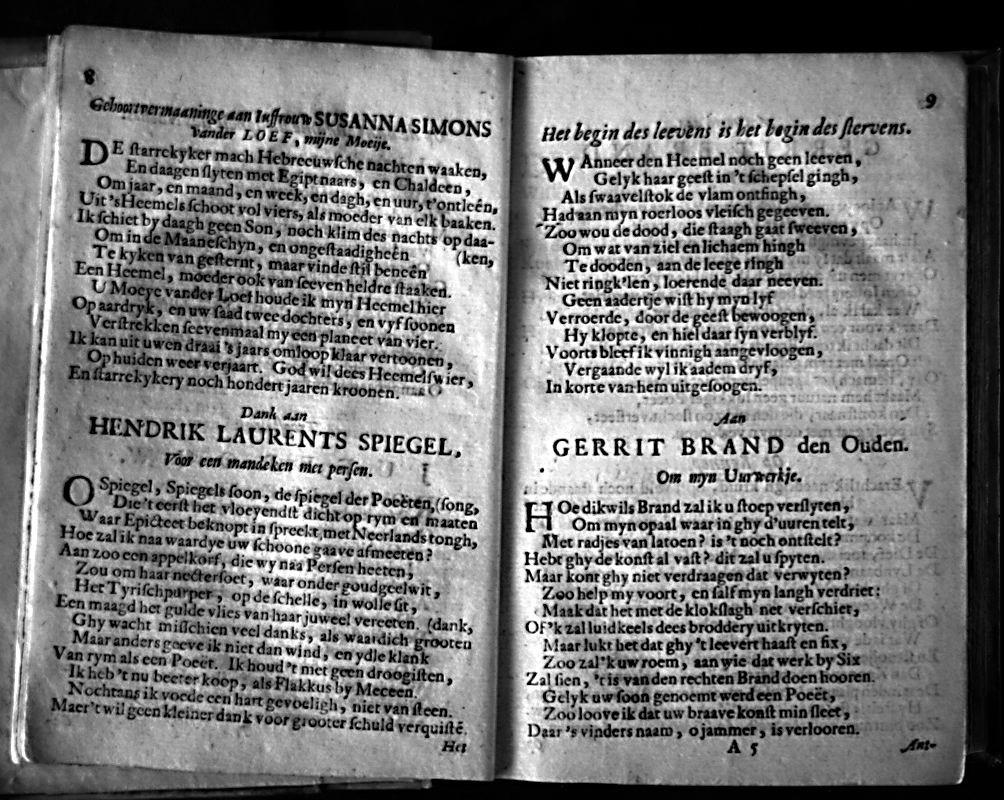 8
Geboortvermaaninge aan Iuffrouw SUSANNA SIMONS
vander LOEF, mijne Moeije.
DE starrekyker mach Hebreeuwsche nachten waaken,
En daagen slyten met Egiptnaars, en Chaldeen,
Om jaar, en maand, en week, en dagh, en uur, t'ontleên,
Uit 's Heemels schoot vol viers, als moeder van elk baaken.
Ik schiet by daagh geen Son, noch klim des nachts op daa-
Om in de Maaneschyn, en ongestaadigheên (ken,
Te kyken van gesternt, maar vinde stil beneên
Een Heemel, moeder ook van seeven heldre staaken.
U Moeye vander Loef houde ik myn Heemel hier
Op aardryk, en uw saad twee dochters, en vyf soonen
Verstrekken seevenmaal my een planeet van vier.
Ik kan uit uwen draai 's jaars omloop klaar vertoonen,
Op huiden weer verjaart. God wil dees Heemel swier,
En starrekykery noch hondert jaaren kroonen.
Dank aan
HENDRIK LAURENTS SPIEGEL,
Voor een mandeken met persen.
O Spiegel, Spiegels soon, de spiegel der Poeëten, (song,
Die 't eerst het vloeyendst dicht op rym en maaten
Waar Epicteet beknopt in spreekt met Neerlands tongh,
Hoe zal ik naa waardye uw schoone gaave afmeeten?
Aan zoo een appelkorf, die wy naa Persen heeten;
Zou om haar nectersoet, waar onder goudgeelwit,
Het Tyrischpurper, op de schelle, in wolle sit,
Een maagd het gulde vlies van haar juweel vereeten. (dank,
Ghy wacht misschien veel danks, als waardich grooten
Maar anders geeve ik niet dan wind, en ydle klank
Van rym als een Poeët. Ik houd 't met geen droogisten,
Ik heb 't nu beeter koop, als Flakkus by Meceen.
Nochtans ik voede een hart gevoeligh, niet van steen.
Maer 't wil geen kleiner dank voor grooter schuld verquisté.
Het
9
Het begin des leevens is het begin des stervens.
WAnneer den Heemel noch geen leeven,
Gelyk haar geest in 't schepsel gingh,
Als swaavelstok de vlam ontfingh,
Had aan myn roerloos vleisch gegeeven.
Zoo wou de dood, die staagh gaat sweeven,
Om wat van ziel en lichaem hingh
Te dooden, aan de leege ringh
Niet ringk'len, loerende daar neeven.
Geen aadertje wist hy myn lyf
Verroerde, door de geest bewoogen,
Hy klopte, en hiel daar syn verblyf.
Voorts bleef ik vinnigh aangevloogen,
Vergaande wyl ik aadem dryf,
In korte van hem uitgesoogen.
Aan
GERRIT BRAND den Ouden.
Om myn Uurwerkje.
HOe dikwils Brand zal ik u stoep verslyten,
Om myn opaal waar in ghy d'uuren telt,
Met radjes van latoen? is 't noch ontstelt?
Hebt ghy de konst al vast? dit zal u spyten.
Maar kont ghy niet verdraagen dat verwyten?
Zoo help my voort, en salf myn langh verdriet:
Maak dat het met de klokslagh net verschiet,
Of 'k zal luidkeels dees broddery uitkryten.
Maar lukt het dat ghy 't leevert haast en fix,
Zoo zal 'k uw roem, aan wie dat werk by Six
Zal sien, 't is van den rechten Brand doen hooren.
Gelyk uw soon genoemt werd een Poeët,
Zoo loove ik dat uw braave konst min sleet,
Daar 's vinders naam, o jammer, is verlooren.
A 5
Ant-